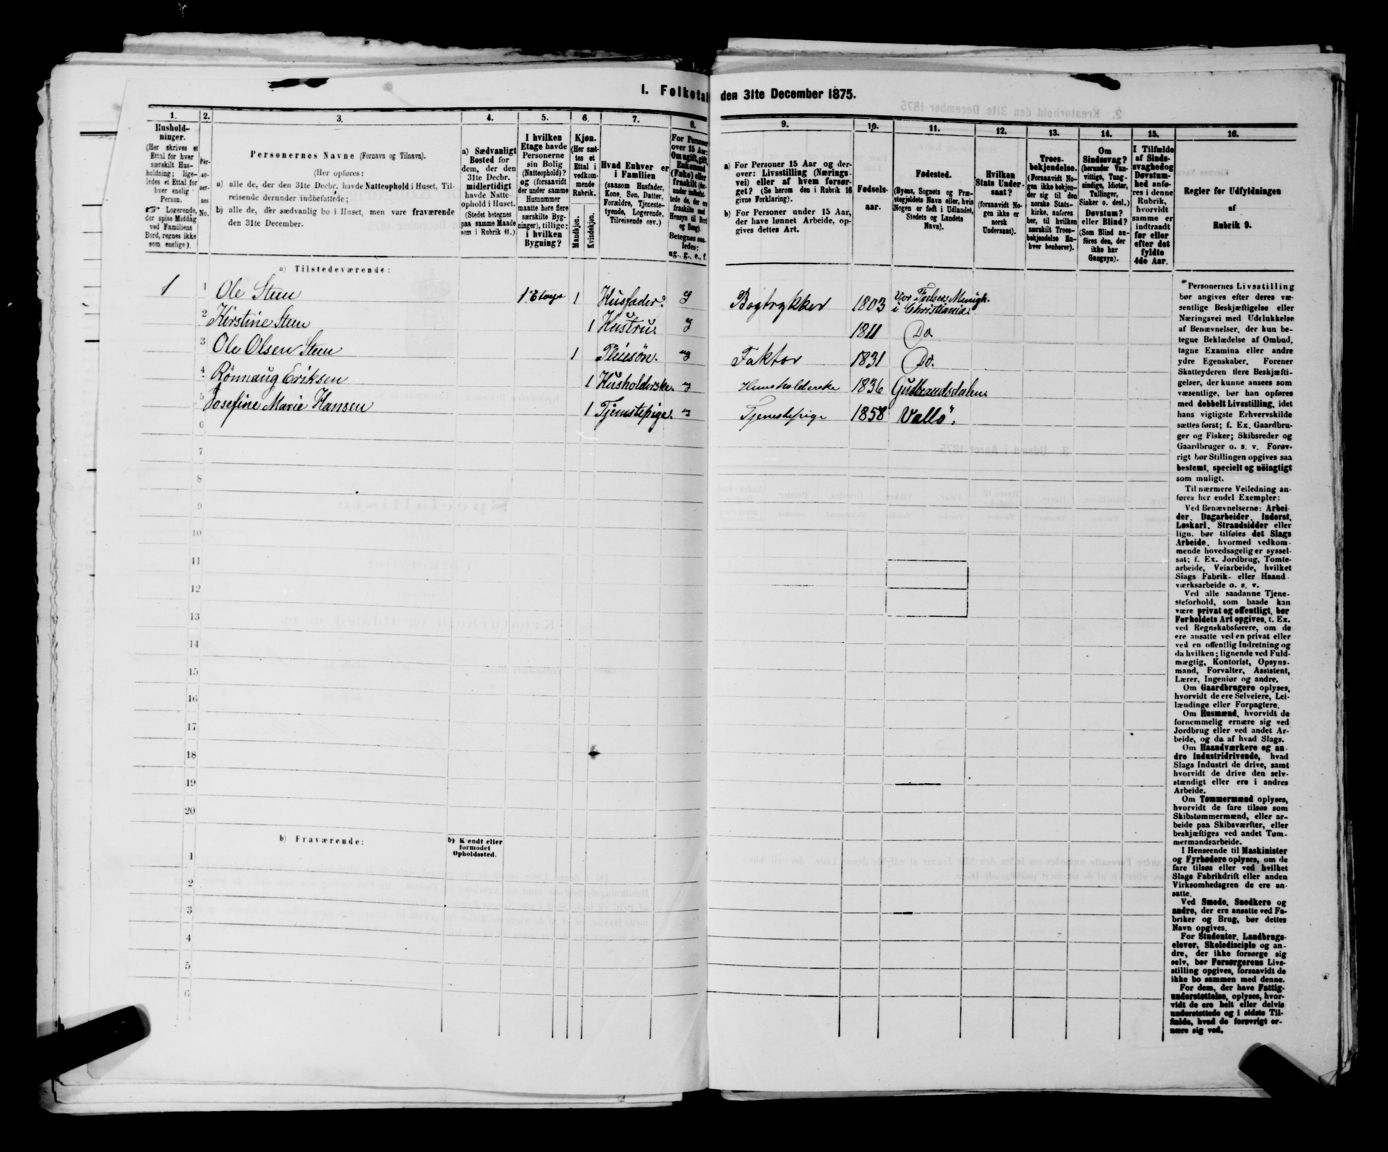 I. Folketal den 31te December 1875.
1.
Hushold-
ninger.
(Her skrives et
Ettal for hver
særskilt Hus-
holdning; lige-
ledes et Ettal for
hver enslig
Person.
Logerende,
der spise Middag
ved Familiens
Bord, regnes ikke
som enslige).
2.
Per-
so-
ner-
nes
No.
3.
Personernes Navne (Fornavn og Tilnavn).
(Her opføres:
a) alle de, der den 31te Decbr. havde Natteophold i Huset, Til-
reisende derunder indbefattede;
b) alle de, der sædvanlig bo i Huset, men vare fraværende
den 31te December.
4.
a) Sædvanligt
Bosted for
dem, der den
31te Decbr.
midlertidigt
havde Natte-
ophold i Huset.
(Stedet betegnes
paa samme Maade
som i Rubrik 11.)
5.
I hvilken
Etage havde
Personerne
sin Bolig
(Natteophold)?
og (forsaavidt
der under samme
Husnummer
maatte høre flere
særskilte Byg-
ninger), tillige:
i hvilken
Bygning?
6.
Kjøn.
(Her sæt-
tes et
Ettal i
vedkom-
mende
Rubrik.)
Mandkjøn.
Kvindekjøn.
7.
Hvad Enhver er
i Familien
(saasom Husfader,
Kone, Søn, Datter,
Forældre, Tjeneste-
tyende, Logerende,
Tilreisende osv.)
8.
For Personer
over 15 Aar:
Om ugift, gift,
Enkemand
(Enke) eller
fraskilt
Betegnes saa-
ledes:
ug., g., e., f.
9.
a) For Personer 15 Aar og der-
over: Livsstilling (Nærings-
vei) eller af hvem forsør-
get? (Se herom den i Rubrik 16
givne Forklaring).
b) For Personer under 15 Aar,
der have lønnet Arbeide, op-
gives dettes Art.
10.
Fødsels-
aar.
11.
Fødested.
(Byens, Sognets og Præ-
stegjeldets Navn eller, hvis
Nogen er født i Udlandet,
Stedets og Landets
Navn).
12.
Hvilken
Stats Under-
saat?
(forsaavidt No-
gen ikke er
norsk
Undersaat).
13.
Troes-
bekjendelse.
(Forsaavidt No-
gen ikke bekjen-
der sig til den
norske Stats-
kirke, anføres
her, til hvilken
særskilt Troes-
bekjendelse En-
hver henhører).
14.
Om
Sindssvag?
(herunder Van-
vittige, Tung-
sindige, Idioter,
Tullinger,
Sinker o. desl.)
Døvstum?
eller Blind?
(Som Blind an-
føres den, der
ikke har
Gangsyn).
15.
I Tilfælde
af Sinds-
svaghed og
Døvstum-
hed anfø-
res i denne
Rubrik,
hvorvidt
samme er
indtraadt
før eller
efter det
fyldte
4de Aar.
16.
Regler for Udfyldningen
af
Rubrik 9.
a) Tilstedeværende:
1 1 Ole Steen 1 Etage 1 Husfader. g Bogtrykker 1803 Vor Frelsers Menigh. i Christiania.
2 Kirstine Steen 1 Hustru. g 1811 Do.
3 Ole Olsen Steen 1 Faktor 1831 Do.
4 Rönnaug Eriksen 1 Husholderske ug Huusholderske 1836 Gudbrandsdalen
5 Josefine Marie Hansen 1 Tjenstepige. ug Tjenstepige 1858 Vallö.
6
7
8
9
10
11
12
13
14
15
16
17
18
19
20
b) Fraværende:
b) Kjendt eller
formodet
Opholdssted.
1
2
3
4
5
6
Personernes Livsstilling
bør angives efter deres væ-
sentlige Beskjæftigelse eller
Næringsvei med Udelukkelse
af Benævnelser, der kun be-
tegne Beklædelse af Ombud,
tagne Examina eller andre
ydre Egenskaber. Forener
Skatteyderen flere Beskjæfti-
gelser, der kunne ansees som
væsentlige, bør han opføres
med dobbelt Livsstilling, idet
hans vigtigste Erhvervskilde
sættes først; f. Ex. Gaardbru-
ger og Fisker; Skibsreder og
Gaardbruger o. s. v. Forøv-
rigt bør Stillingen opgives saa
bestemt, specielt og nøiagtigt
som muligt.
Til nærmere Veiledning an-
føres her endel Exempler:
Ved Benævnelserne: Arbei-
der, Dagarbeider, Inderst,
Løskarl, Strandsidder eller
lign. bør tilføies det Slags
Arbeide, hvormed vedkom-
mende hovedsagelig er syssel-
sat; f. Ex. Jordbrug, Tomte-
arbeide, Veiarbeide, hvilket
Slags Fabrik- eller Haand-
værksarbeide o. s. v.
Ved alle saadanne Tjene-
steforhold, som baade kan
være privat og offentligt, bør
Forholdets Art opgives, f. Ex.
ved Regnskabsførere, om de
ere ansatte ved en privat eller
ved en offentlig Indretning og
da hvilken; lignende ved Fuld-
mægtig, Kontorist, Opsyns-
mand, Forvalter, Assistent,
Lærer, Ingeniør og andre.
Om Gaardbrugere oplyses,
hvorvidt de ere Selveiere, Lei-
lændinge eller Forpagtere.
Om Husmænd, hvorvidt de
fornemmelig ernære sig ved
Jordbrug eller ved andet Ar-
beide, og da af hvad Slags.
Om Haandværkere og an-
dre Industridrivende, hvad
Slags Industri de drive, samt
hvorvidt de drive den selv-
stændigt eller ere i andres
Arbeide.
Om Tømmermænd oplyses,
hvorvidt de fare tilsøs som
Skibstømmermænd, eller ar-
beide paa Skibsværfter, eller
beskjæftiges ved andet Tøm-
mermandsarbeide.
I Henseende til Maskinister
og Fyrbødere oplyses, om de
fare tilsøs eller ved hvilket
Slags Fabrikdrift eller anden
Virksomhedsgren de ere an-
satte.
Ved Smede, Snedkere og
andre, der ere ansatte ved Fa-
briker og Brug, bør dettes
Navn opgives.
For Studenter, Landbrugs-
elever, Skoledisciple og an-
dre, der ikke forsørge sig
selv, bør Forsørgerens Livs-
stilling opgives, forsaavidt de
ikke bo sammen med denne.
For dem, der have Fattig-
understøttelse, oplyses, hvor-
vidt de ere helt eller delvis
understøttede og i sidste Til-
fælde, hvad de forøvrigt er-
nære sig ved.